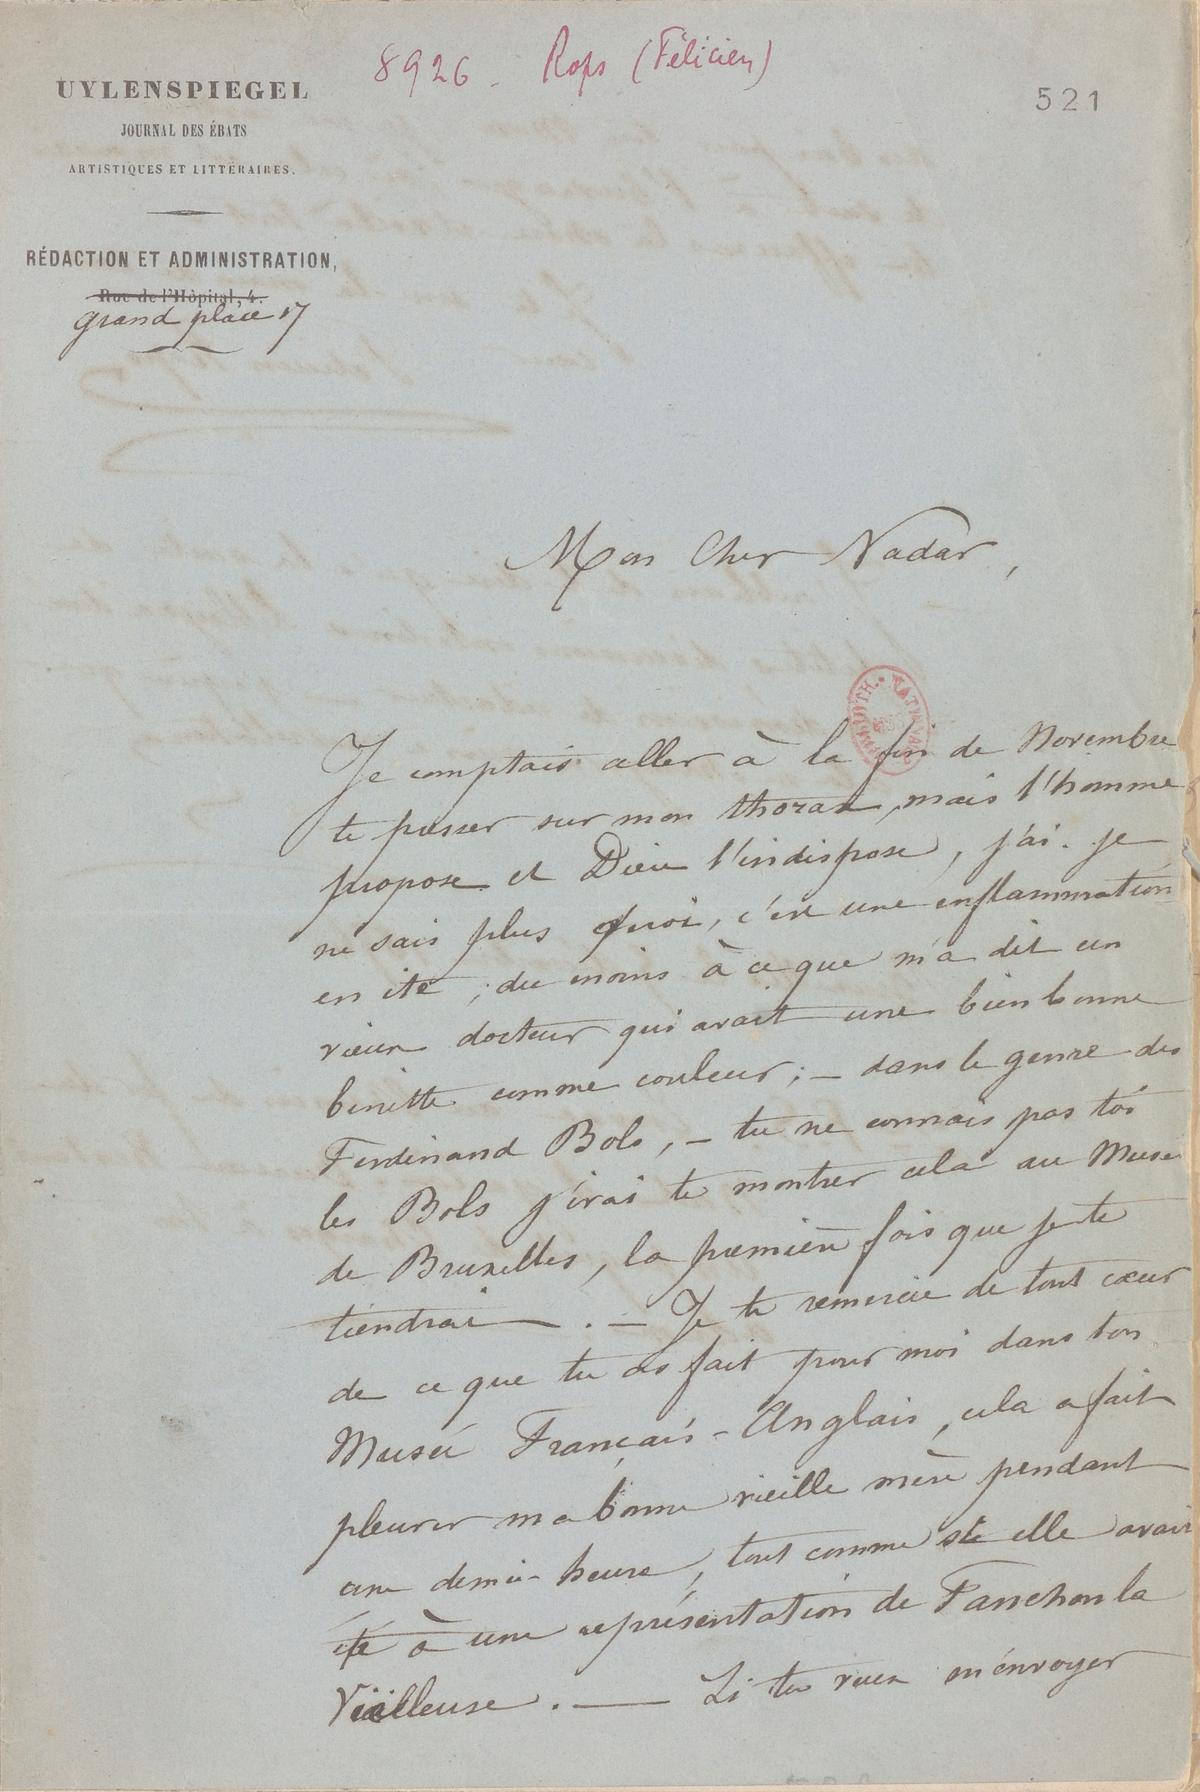 8926 . Rops (Félicien)
521
UYLENSPIEGEL
JOURNAL DES ÉBATS
ARTISTIQUES ET LITTÉRAIRES.
RÉDACTION ET ADMINISTRATION,
Rue de l'Hôpital, 4.
grand place 17
Mon Cher Nadar,
Je comptais aller à la fin de Novembre
te presser sur mon thorax, mais l'homme
propose et Dieu l'indispose, j'ai je
ne sais plus quoi, c'est une enflammation
en ite ; du moins à ce que m'a dit un
vieux docteur qui avait une bien bonne
binette comme couleur ; – dans le genre des
Ferdinand Bols, – tu ne connais pas toi
les Bols j'irai te montrer cela au Musée
de Bruxelles, la première fois que je te
tiendrai . – Je te remercie de tout cœur
de ce que tu as fait pour moi dans ton
Musée Français-Anglais, cela a fait
pleurer ma bonne vieille mère pendant
une demie-heure, tout comme si elle avait
été à une représentation de Fanchon la
Vielleuse . — Si tu veux m'envoyer